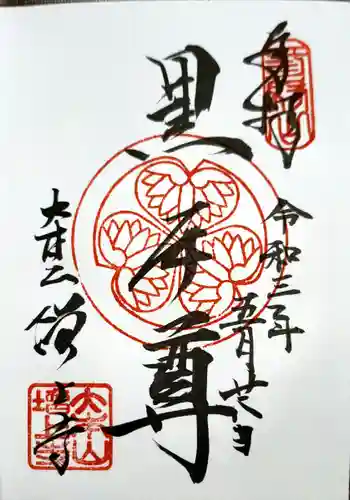 奉拝
黒本尊
令和三年
五月廿六日
大本山
増上寺
大本山
増上寺